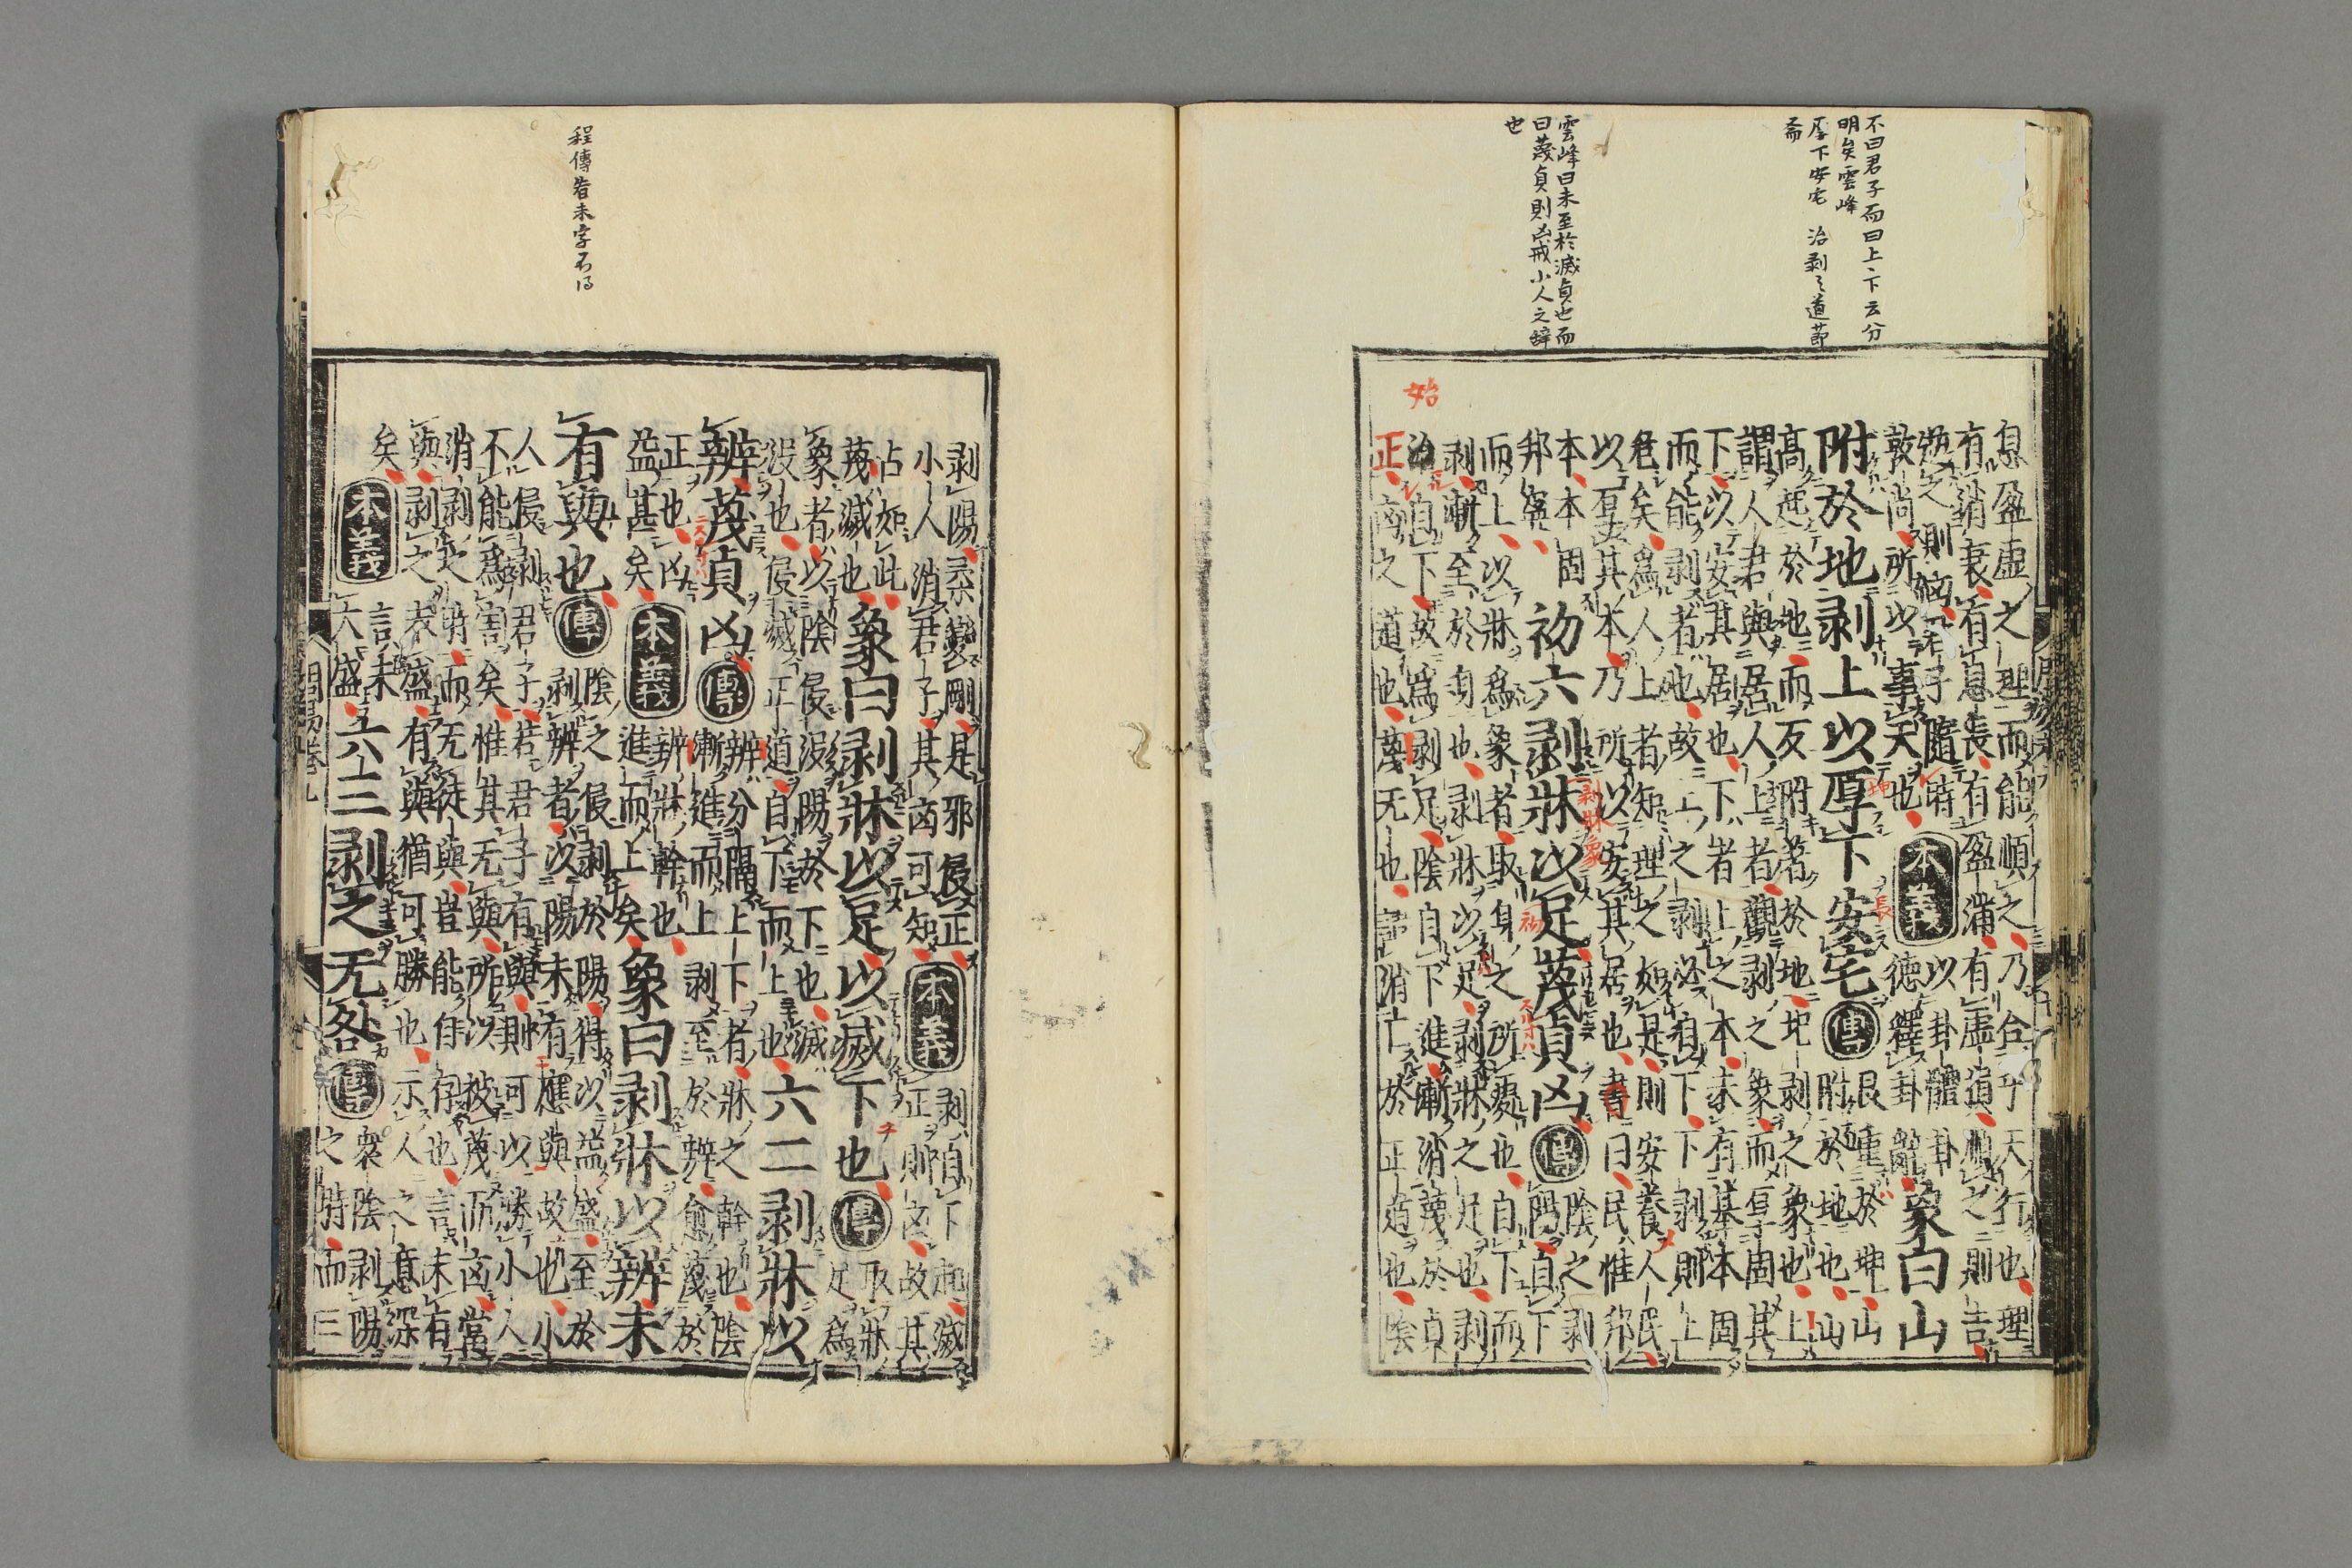 不曰君子而曰上下云分
明矣雲峰
厚下安宅 治剥之道節
斎
雲峰曰未至於滅貞也而
曰蔑貞則凶戒小人之辞
也
息盈虚之理而能順之乃合乎天行也理
有消衰有息長有盈滿有虚損順之則吉
逆之則凶君子隨時敦尚所以事天也本義以卦體卦徳釋卦辭象曰山
附於地剥上以厚下安宅傳艮重於坤山附於地山
高起於地而反附著於地圯剥之象也上
謂人君與居人上者觀剥之象而厚固其
下以安其居也下者上之本未有基本固
而能剥者也故上之剥必自下下剥則上
危矣爲人上者知理之如是則安養人民
以厚其本乃所以安其居也書曰民惟邦
本本固邦寧初六剥牀以足蔑貞凶傳陰之剥陽自下
而上以牀爲象者取身之所處也自下而
剥漸至於身也剥牀以足剥牀之足也剥
始
治自下故爲剥足陰自下進漸消蔑於貞
正凶之道也蔑无也謂消亡於正道也陰
程傳皆未字不得
剥陽柔變剛是邪侵正小人消君子其凶可知本義剥自下起滅正則凶故其
占如此蔑滅也象曰剥牀以足以滅下也傳取牀足爲
象者以陰侵没陽於下也滅没也侵滅正道自下而上也六二剥牀以
辨蔑貞凶傳辨分隔上下者牀之幹也陰漸進而上剥至於辨愈蔑於
正也凶益甚矣本義辨牀幹也進而上矣象曰剥牀以辨未
有與也傳陰之侵剥於陽得以益盛至於剥辨者以陽未有應與故也小
人侵剥君子若君子有與則可以勝小人
不能爲害矣惟其无與所以被蔑而凶當
消剥之時而无徒與豈能自存也言未有
與剥之未盛有與猶可勝也示人之意深
矣本義言未大盛六三剥之无咎傳衆陰剥陽之時而三